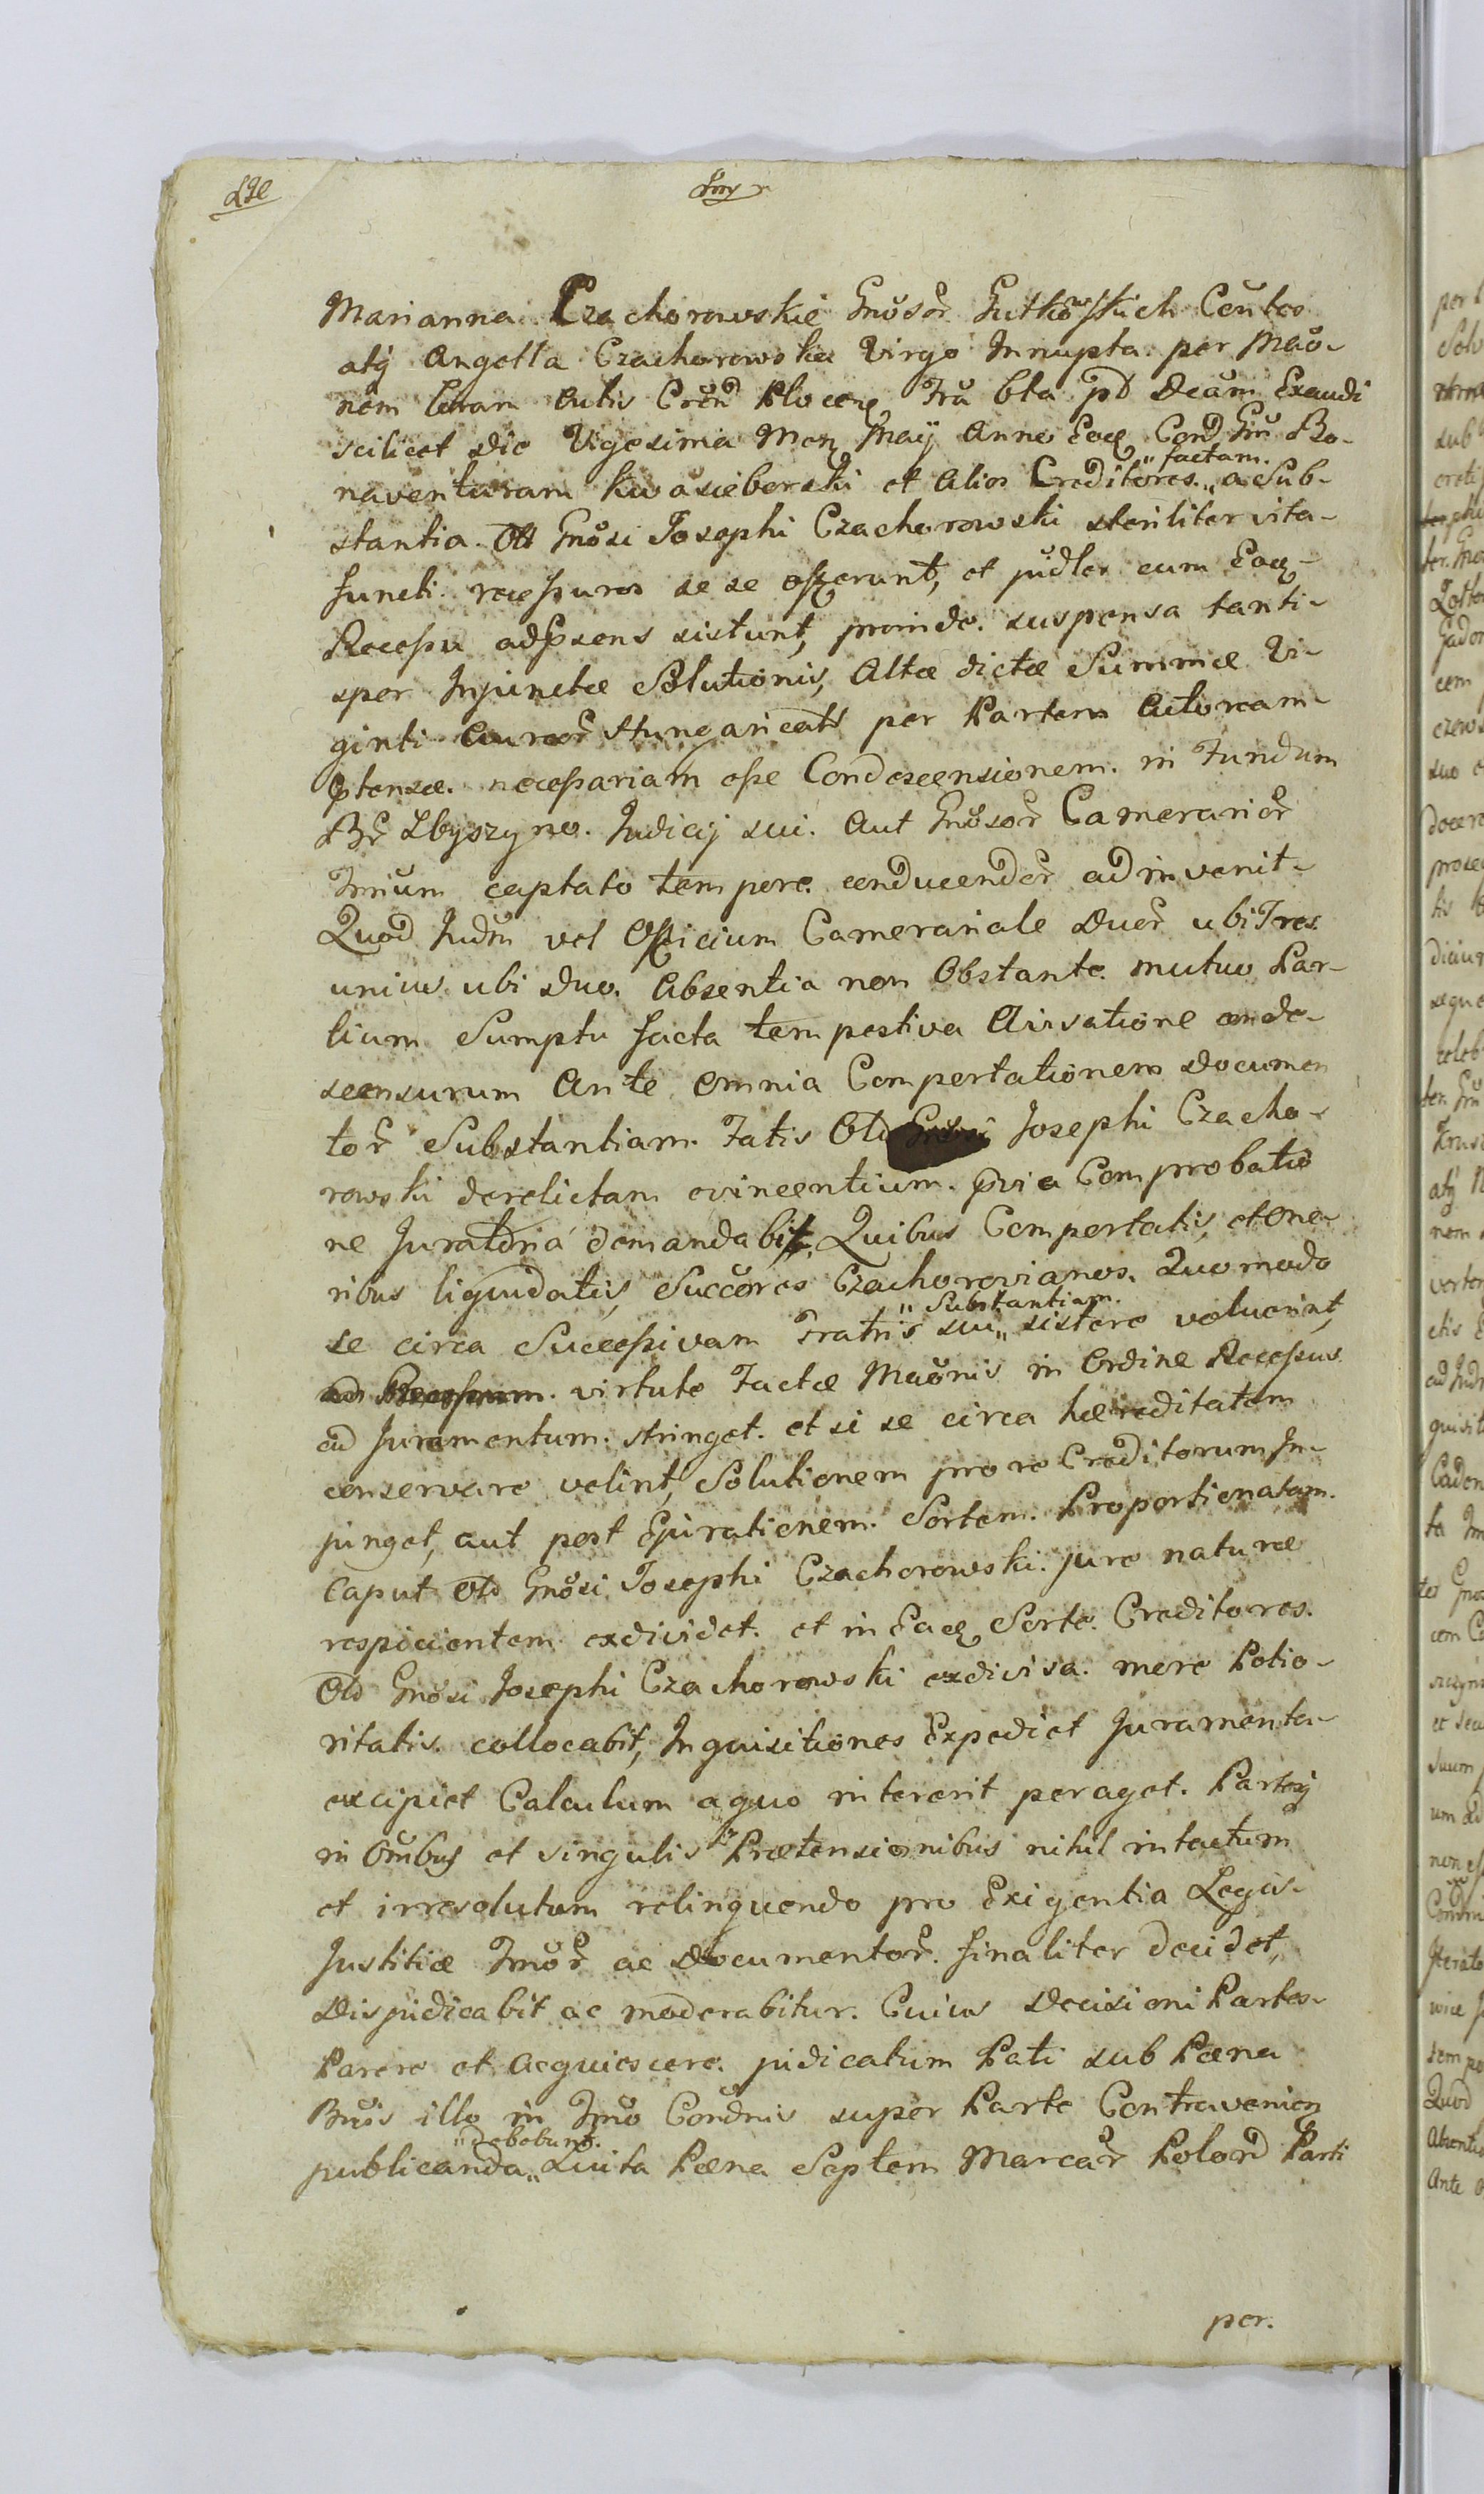 Marianna Czachorowskie Gnosor Gutkowskich Contes
atq Angella Czachorowska Virgo Innupta per Mao-
nem coram Autis Cren Plocens Fra bta pt Dcam Exaudi
scilicet Die Vigesima Mens Maÿ Anno Eoq Cond Gm Bo-
naventuram Kwasieborski et Alios Creditores „factam. a Sub-
stantia Olt Gnosi Josephi Czachorowski steriliter vita-
functi recessuros se se offerunt, et judler cum Eoq-
Recessu adpsens sistunt, proinde. suspensa tanti-
sper Injunctæ Solutionis, Altæ dictæ Summæ Vi-
ginti Aureor Hungaricals per Partem Actoream
ptensæ. necessariam esse Condescensionem. in Fundum
Br Zbyszyno. Judicij sui. Aut Gnosor Camerarior
Trium captato tempore conducendor adinvenit-
Quod Judm vel Officium Camerariale Duor ubi Tres
unius ubi Duo. Absentia non Obstante. mutuo Par-
tium Sumptu facta tempestiva Aivsatione conde-
scensurum Ante omnia Comportationem Documen
tor Substantiam. Fatis Old Gnosi Josephi Czacho-
rowski derelictam evincentium. pvia Comprobatio
ne Juratoria demandabit, Quibus Comportatis, et one-
ribus liquidatis, Succores Czachorovianos. Quomodo
se circa Successivam Fratris sui „Substantiam. sistere voluerint,
ad Recessum. virtute Factæ Maonis in Ordine Recessus
ad Juramentum. stringet. et si se circa hæreditatem
conservare velint, Solutionem pro re Creditorum In-
junget, aut post Epirationem. Sortem. Proportionatam.
Caput Old Gnosi Josephi Czachorowski. jure naturæ
respicientem. exdividet. et in Eaq Sorte. Creditores.
Old Gnosi Josephi Czachorowski exdivisa. mere Potio-
ritatis. collocabit, Inquisitiones Expediet Juramenta-
excipiet Calculum aquo intererit peraget. Partesq
in Ombus et singulis Prætensionibus nihil intactum
et irresolutum relinquendo pro Exigentia Legis-
Justitiæ Jmor ac Documentor. finaliter decidet,
Disjudicabit ac moderabitur. Cuius Decisioni Partes-
Parere et Acquiescere. judicatum Pati sub Pæna
Bnois illo in Jmo Condnis super Parte Contravenien
publicanda „debebunt. Luita Pæna Septem Marcar Polond Parti
per.